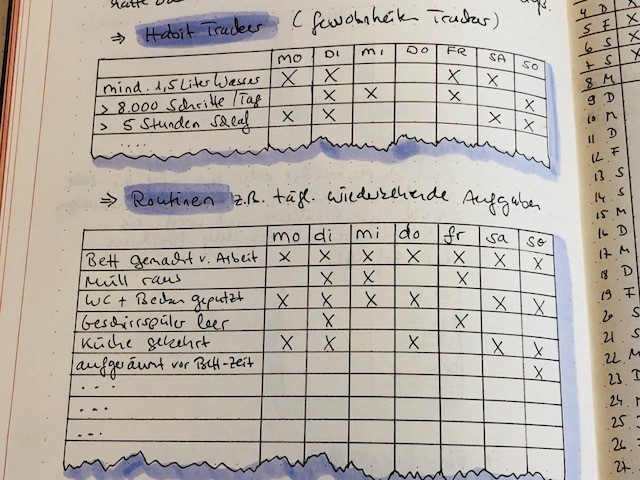 ⇒ Habit Tracker (Gewohnheiten Tracker)
MO DI MI DO FR SA SO
mind. 1,5 Liter Wasser X X X X
> 8.000 Schritte/Tag X X X X
> 5 Stunden Schlaf X X X X
.....
⇒ Routinen z.B. tägl. wiederkehrende Aufgaben
mo di mi do fr sa so
Bett gemacht v. Arbeit X X X X X X X
Müll raus X X X
WC + Becken geputzt X X X X X X
Geschirrspüler leer X X
Küche gekehrt X X X X X
aufgeräumt vor Bett-Zeit X
...
...
...
4 D
5 F X
6 S X
7 S X
8 M
9 D
10 M
11 D
12 F
13 S
14 S
15 M
16 D
17 M
18 D
19 F
20 S
21. S
22. M
23. D
24. M
25.
26.
27.